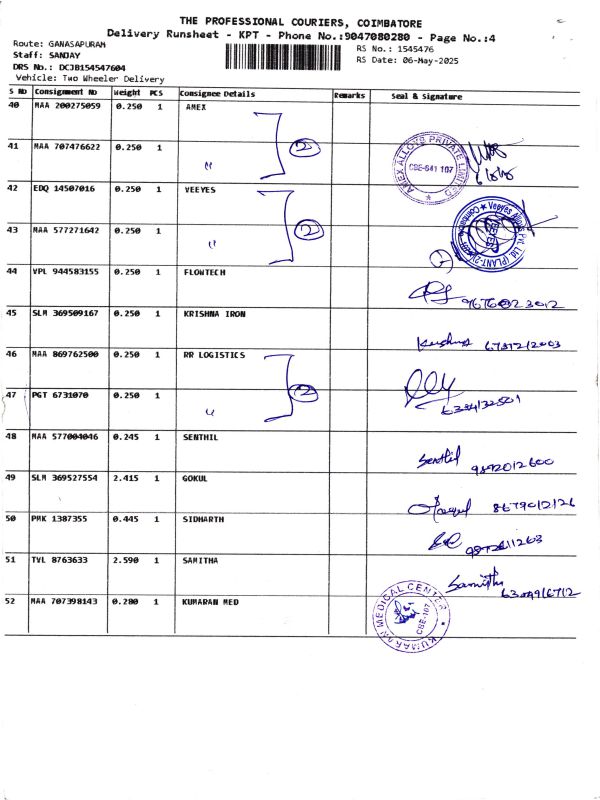 THE PROFESSIONAL COURIERS, COIMBATORE
Delivery Runsheet - KPT - Phone No.:9047080280 - Page No.:4
Route: GANASAPURAM
RS No.: 1545476
Staff: SANJAY
RS Date: 06-May-2025
DRS No.: DCJB154547604
Vehicle: Two Wheeler Delivery
S No Consignment No Weight PCS Consignee Details Remarks Seal & Signature
40 MAA 200275059 0.250 1 AMEX
41 MAA 707476622 0.250 1 " 2 AMEX ALLOYS PRIVATE LIMITED CBE-641 107
42 EDQ 14507016 0.250 1 VEEYES
43 MAA 577271642 0.250 1 " 2 Veeyes Alloys Pvt. Ltd (PLANT-2) VEEYES
44 VPL 944583155 0.250 1 FLOWTECH
45 SLM 369509167 0.250 1 KRISHNA IRON Krishna
46 MAA 869762500 0.250 1 RR LOGISTICS
47 PGT 6731070 0.250 1 " 2
48 MAA 577004046 0.245 1 SENTHIL Senthil 9892012600
49 SLM 369527554 2.415 1 GOKUL 8679012126
50 PMK 1387355 0.445 1 SIDHARTH
51 TVL 8763633 2.590 1 SAMITHA Samitha
52 MAA 707398143 0.280 1 KUMARAN MED KUMARAN MEDICAL CENTER CBE-107